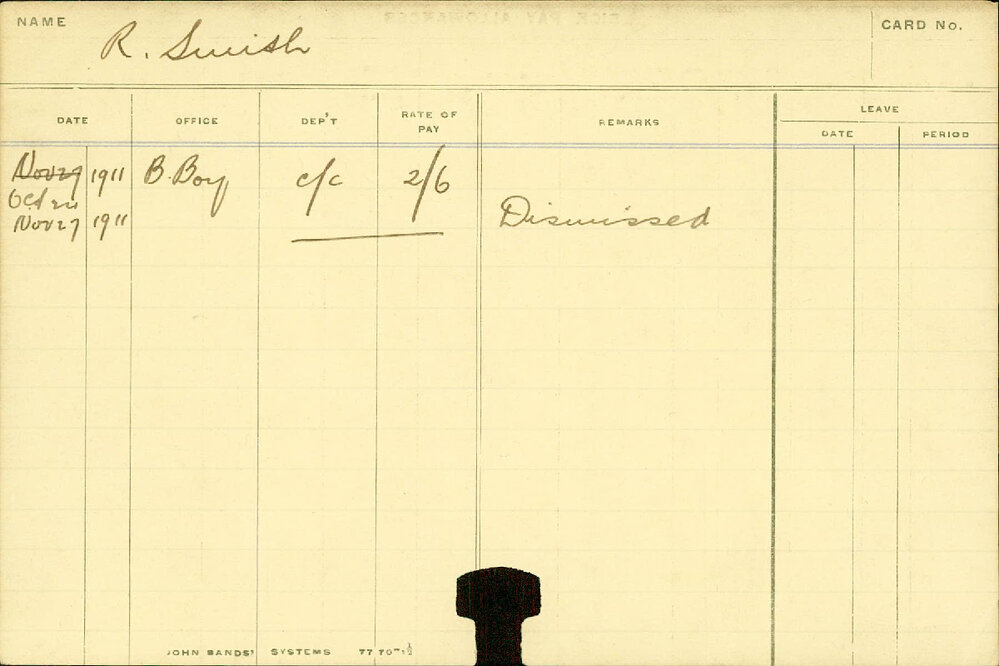 NAME R. Smith CARD No.
DATE OFFICE DEP'T RATE OF PAY REMARKS LEAVE
DATE PERIOD
Nov 27 1911 B. Boy c/c 2/6
Oct 24
Nov 27 1911 Dismissed
JOHN SANDS' SYSTEMS